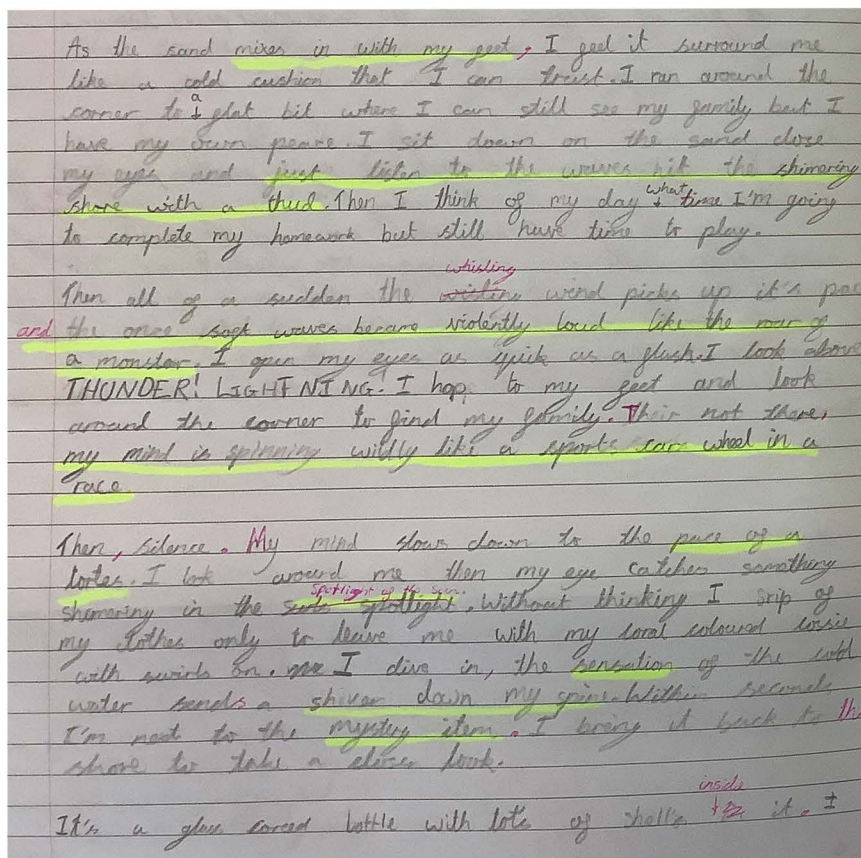 As the sand mixes in with my feet, I feel it surround me
like a cold cushion that I can trust. I ran around the
corner to a flat bit where I can still see my family but I
have my own peace. I sit down on the sand close
my eyes and just listen to the waves hit the shimering
shore with a thud. Then I think of my day what time I'm going
to complete my homework but still have time to play.
Then all of a sudden the whisling wind picks up it's pac
and the once soft waves became violently loud like the roar of
a monster. I open my eyes as quick as a flash. I look above
THUNDER! LIGHTNING! I hop to my feet and look
around the corner to find my family. Their not there,
my mind is spinning wildly like a sports car wheel in a
race.
Then, silence. My mind slows down to the pace of a
tortes. I look around me then my eye catches something
shimering in the spotlight of the sun. Without thinking I srip of
my clothes only to leave me with my coral coloured cossie
with swirls on. I dive in, the sensation of the cold
water sends a shiver down my spine. Within seconds
I'm next to the mystery item. I bring it back to th
shore to take a closer look.
It's a glass bottle with lot's of shells inside it. I